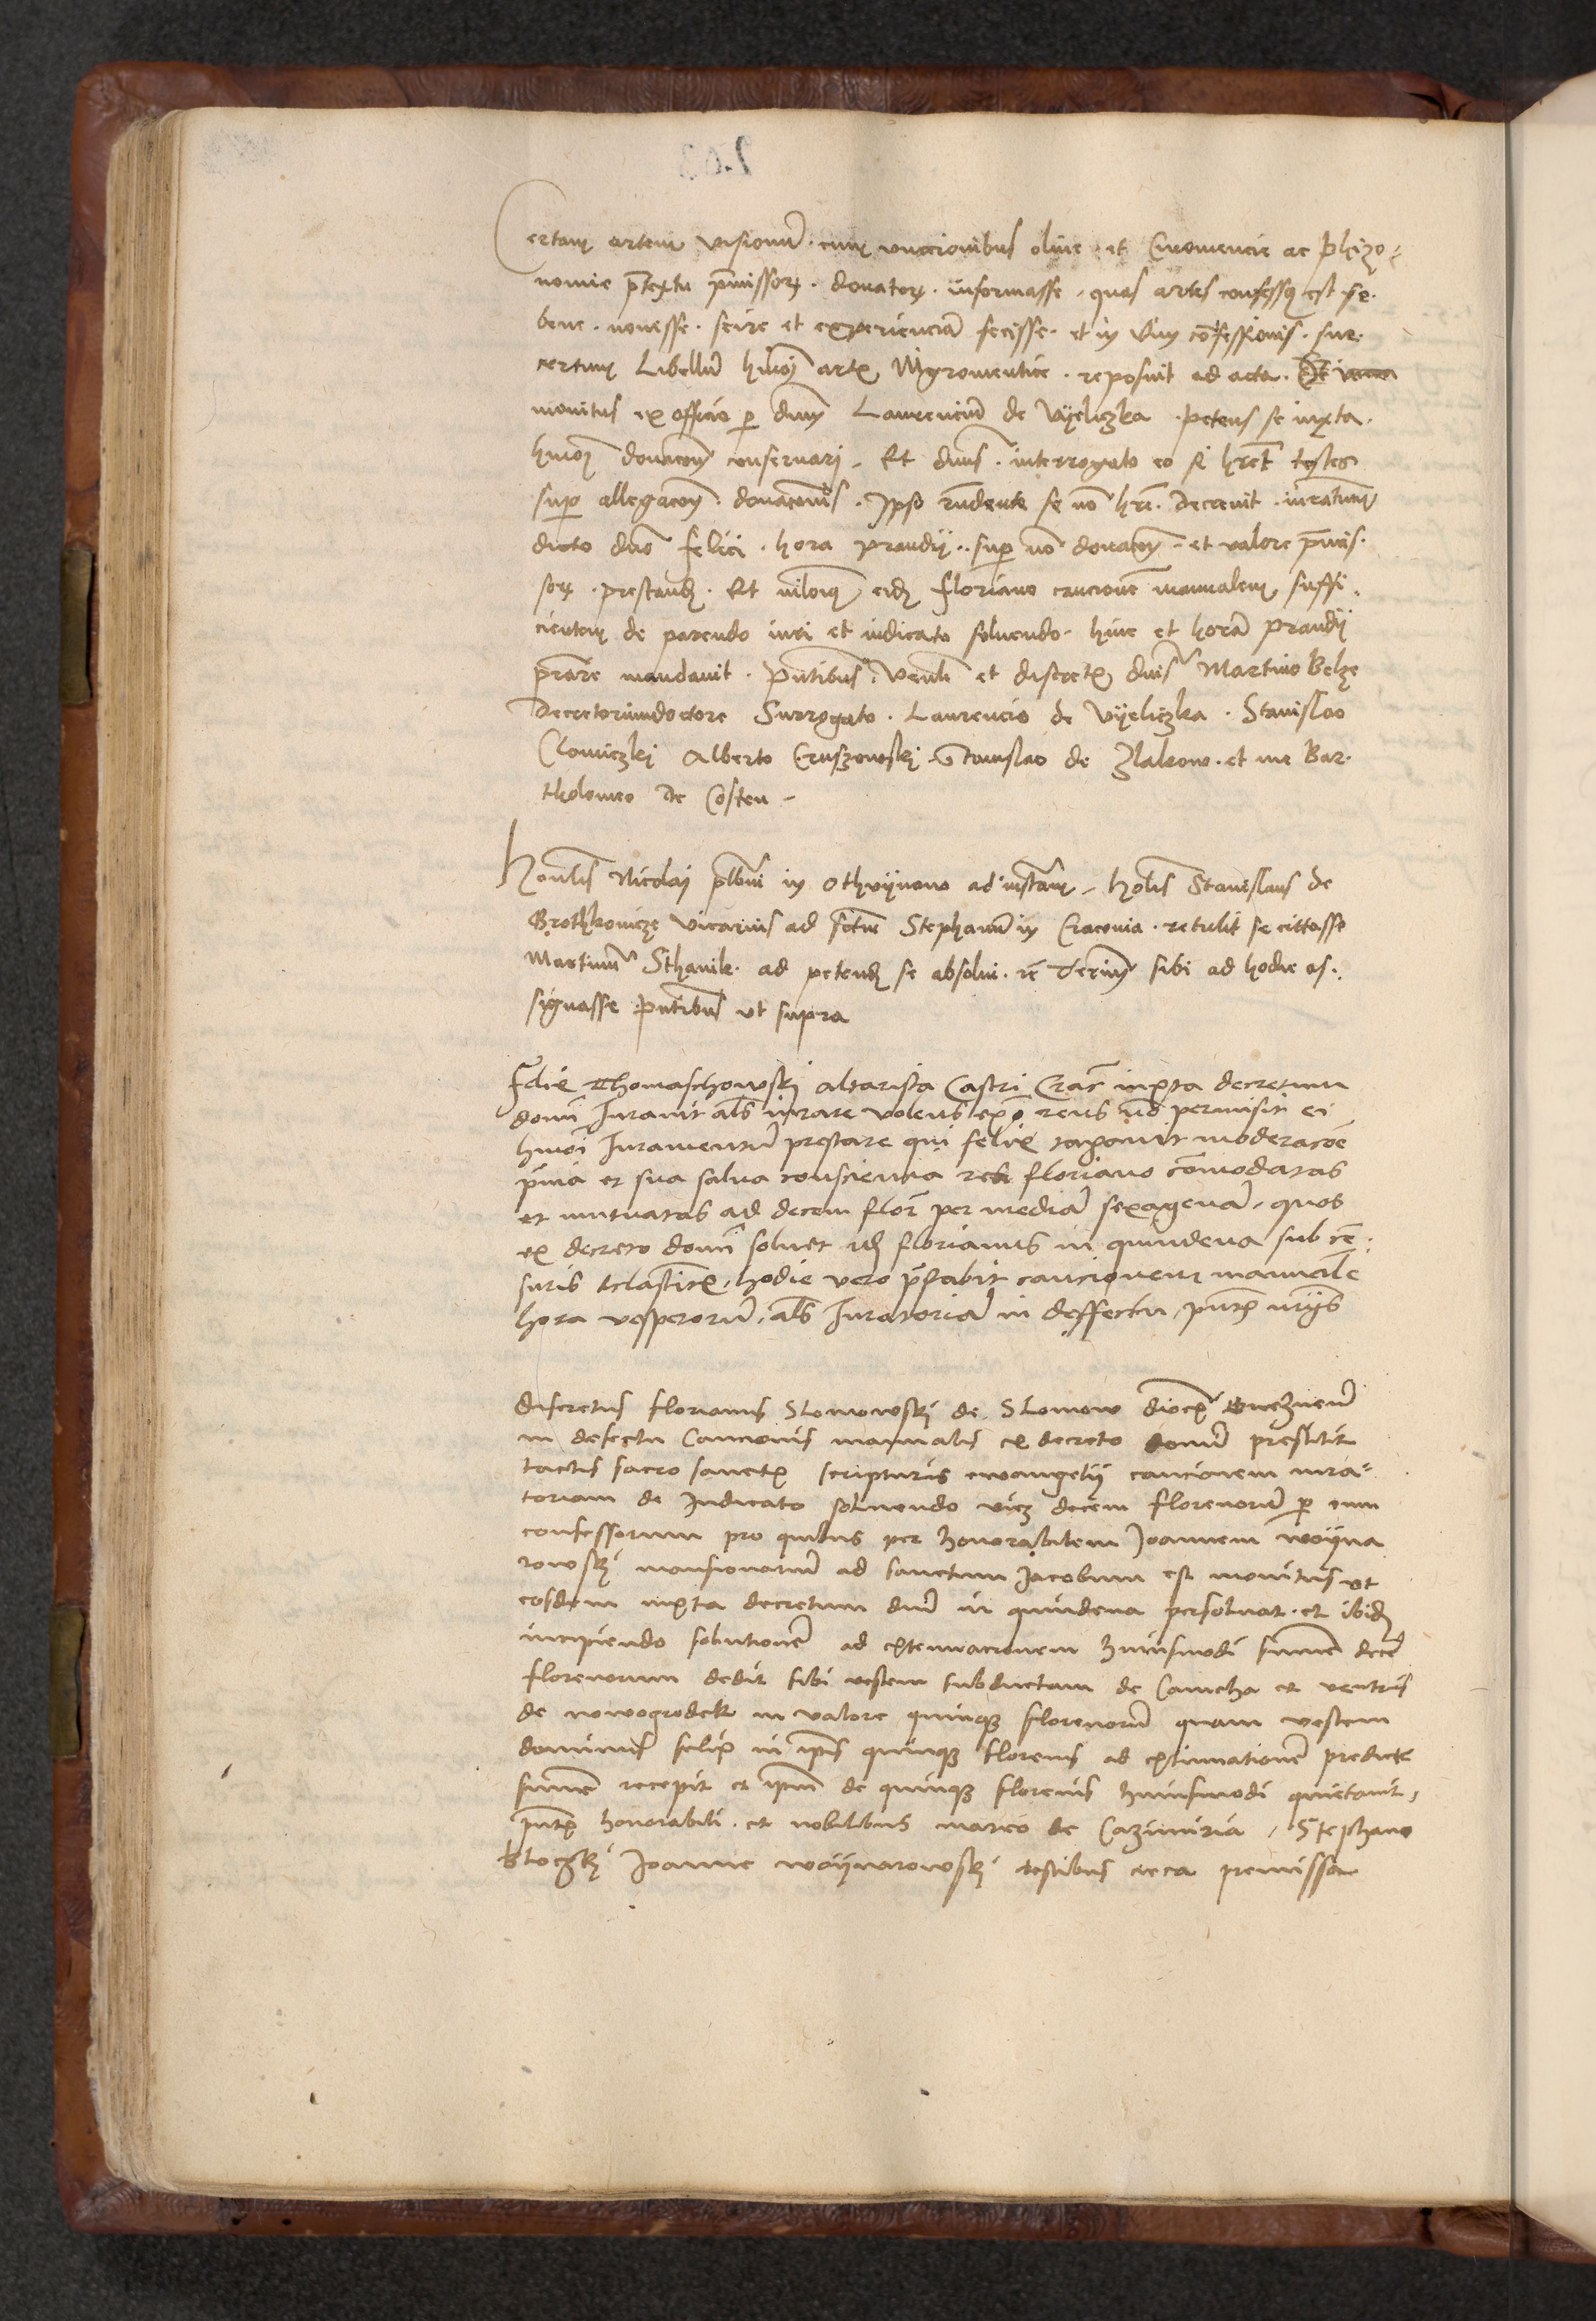 Certam artem visionũ. cum vnccionibus oline et Cinomencie ac Phizo-
nomie p̃textu p̃missorꝝ. donatorꝝ. informasse. quas artes confessꝰ est se.
bene. nouesse. scire et experienciã fecisse. et in vim cõfessionis. sue.
certum Libellũ hmõi artꝭ Nigromentice. reposuit ad acta.
monitus ex officio p dnm Laurenciũ de Vyeliczka. petens se iuxta.
hmõi donacoem conseruari. Et dnus. interrogato eo si hret testes
sup allegacoem. donacois. Ipso rñdente se nõ hre. Decreuit. iuratum
dicto dno felici. hora prandij.. sup nõ donacoem. et valore p̃mis-
sorꝝ. prestand. Et nilomĩ eidem floriano caucionẽ manualem suffi-
cientem de parendo iuri et iudicato soluendo. hinc et horã prandij
p̃stare mandauit. Pñtibus. Venli et discretꝭ dnis Martino Belze
Decretorumdoctore Surrogato. Laurencio de Vyeliczka. Stanislao
Chomiczkj Alberto Cruszowskj. Stanislao de Zlakow. et me Bar-
tholomeo de Costen –
Honlis Nicolaj plbni in Othvijnow ad instãciam. holis Stanislaus de
Brothkowicze vicarius ad sctum Stephanũ in Cracouia. retulit se cittasse
Martinũ Sthanik. ad petend se absolui. re terminũ sibi ad hodie as-
signasse pñtibus vt supra
Felix Thomaschowskj altarista Castri Crac iuxta decretum
domi Jurauit als iurare volens reus nõ permisit ei
hmõi Juramentũ prestare qui felix taxauit moderacõe
p̃uia et sua salua consciencia res floriano cõmodatas
et mutuatas ad decem flor per mediã sexagenã. quos
ex decreto domi soluet id florianus in quindena sub cẽ-
suris ecclasticꝭ. hodie vero p̃stabit caucionem manualẽ
hora vesperorũ. als Juratoriã in deffectu. pñtꝭ
discretus florianus Slomowskj de Slomow diocꝭ Gnezneñ
in defectu Caucionis manualis ex decreto domĩ prestitit
tactis sacro sanctꝭ scripturis ewangelij caucionem iura-
toriam de Judicato soluendo vicꝫ decem florenorũ p eum
confessorum pro quibus per honorabilem Joannem woijna
rowskj mansionariũ ad sanctum Jacobum est monitus vt
eosdem iuxta decretum dni in quindena persoluat. et ibidem
incipiendo solutionẽ ad extenuacionem huiusmodi summe decẽ
florenorum dedit sibi vestem subductam de Camcha et ventris
de nowogrodek in valore quinqꝫ florenorũ quam vestem
dominus felix in ipis quinqꝫ florenis ad extimationẽ predicte
summe recepit et ipm de quinqꝫ florenis huiusmodi quietauit.
pñtꝭ honorabili. et nobilibus mateo de Cazimiria, Stephano
Joanne woijnarowskj testibus circa premissa